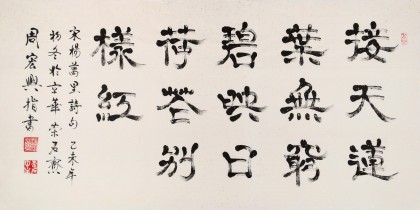 接天蓮
葉無窮
碧映日
荷花別
樣紅
宋楊萬里詩句 乙未年
初冬於京華
周宏興指書